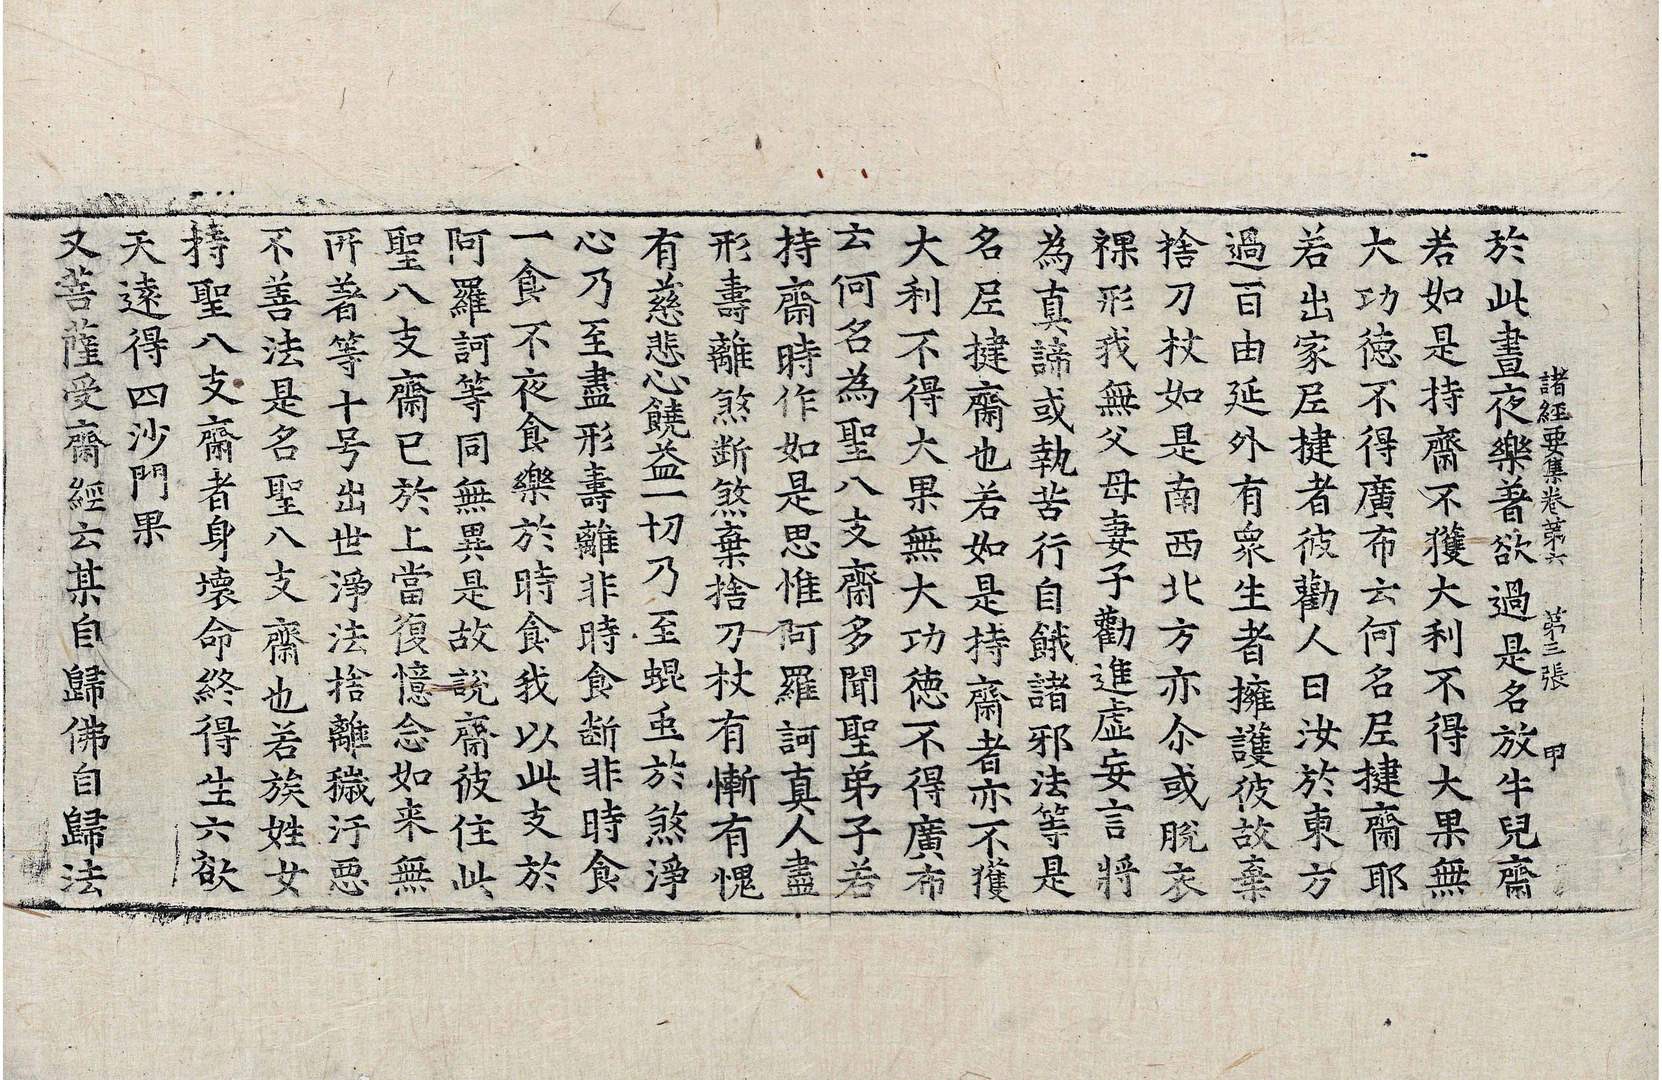 諸經要集卷第六　第三張　甲
於此晝夜樂著欲過是名放牛兒齋
若如是持齋不獲大利不得大果無
大功德不得廣布云何名尼揵齋耶
若出家尼揵者彼勸人曰汝於東方
過百由延外有衆生者擁護彼故棄
捨刀杖如是南西北方亦尒或脫衣
裸形我無父母妻子勸進虛妄言將
為真諦或執苦行自餓諸邪法等是
名尼揵齋也若如是持齋者亦不獲
大利不得大果無大功德不得廣布
云何名為聖八支齋多聞聖弟子若
持齋時作如是思惟阿羅訶真人盡
形壽離煞斷煞棄捨刀杖有慚有愧
有慈悲心饒益一切乃至蜫䖝於煞淨
心乃至盡形壽離非時食断非時食
一食不夜食樂於時食我以此支於
阿羅訶等同無異是故說齋彼住此
聖八支齋已於上當復憶念如来無
所著等十号出世淨法捨離穢汙惡
不善法是名聖八支齋也若族姓女
持聖八支齋者身壞命終得生六欲
天遠得四沙門果
又菩薩受齋經云某自歸佛自歸法